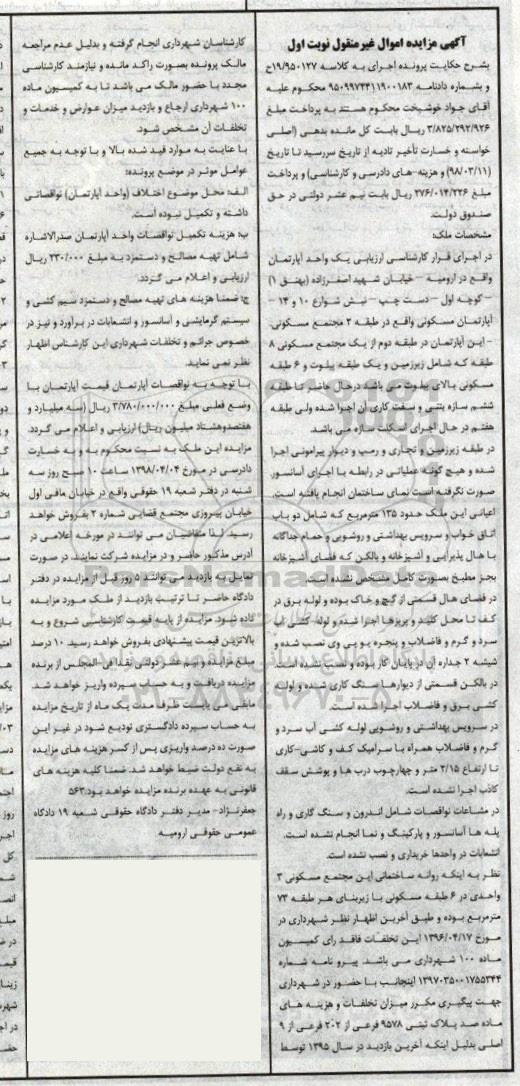 آگهی مزایده اموال غیرمنقول نوبت اول
بشرح حکایت پرونده اجرای به کلاسه ۱۹/۹۵۰۱۲۷ح
و بشماره دادنامه ۹۵۰۹۹۷۴۴۱۱۹۰۰۱۸۳ محکوم علیه
آقای جواد خوشبخت محکوم هستند به پرداخت مبلغ
۳/۸۲۵/۲۹۲/۹۲۶ ریال بابت کل مانده بدهی (اصلی
خواسته و خسارت تأخیر تادیه از تاریخ سررسید تا تاریخ
(۹۸/۰۳/۱۱) و هزینه-های دادرسی و کارشناسی) و پرداخت
مبلغ ۲۷۶/۰۱۴/۲۲۶ ریال بابت نیم عشر دولتی در حق
صندوق دولت.
مشخصات ملک:
در اجرای قرار کارشناسی ارزیابی یک واحد آپارتمان
واقع در ارومیه – خیابان شهید اصغرزاده (بهنق ۱)
– کوچه اول – دست چپ – نبش شوارع ۱۰ و ۱۴ –
آپارتمان مسکونی واقع در طبقه ۲ مجتمع مسکونی.
– این آپارتمان در طبقه دوم از یک مجتمع مسکونی ۸
طبقه که شامل زیرزمین و یک طبقه پیلوت و ۶ طبقه
مسکونی بالای پیلوت می باشد درحال حاضر تا طبقه
ششم سازه بتنی و سفت کاری آن اجرا شده ولی طبقه
هفتم در حال اجرای اسکلت سازه می باشد.
در طبقه زیرزمین و تجاری و رمپ و دیوار پیرامونی اجرا
شده و هیچ گونه عملیاتی در رابطه با اجرای آسانسور
صورت نگرفته است نمای ساختمان انجام یافته است.
اعیانی این ملک حدود ۱۳۵ مترمربع که شامل دو باب
اتاق خواب و سرویس بهداشتی و روشویی و حمام جداگانه
با هال پذیرایی و آشپزخانه و بالکن که فضای آشپزخانه
بجز مطبخ بصورت کامل مشخص نشده است.
در فضای هال قسمتی از گچ و خاک بوده و لوله برق در
کف تا محل کلید و پریزها اجرا شده و لوله کشی آب
سرد و گرم و فاضلاب و پنجره یو پی وی نصب شده و
شیشه ۲ جداره آن در پایان کار بوده و نصب نشده است.
در بالکن قسمتی از دیوارها سنگ کاری شده و لوله
کشی برق و فاضلاب اجرا شده است.
در سرویس بهداشتی و روشویی لوله کشی آب سرد و
گرم و فاضلاب همراه با سرامیک کف و کاشی-کاری
تا ارتفاع ۲/۱۵ متر و چهارچوب درب ها و پوشش سقف
کاذب اجرا شده است.
در مشاعات نواقصات شامل اندرون و سنگ کاری و راه
پله ها آسانسور و پارکینگ و نما انجام نشده است.
انشعابات در واحدها خریداری و نصب نشده است.
نظر به اینکه روانه ساختمانی این مجتمع مسکونی ۳
واحدی در ۶ طبقه مسکونی با زیربنای هر طبقه ۷۳
مترمربع بوده و طبق آخرین اظهار نظر شهرداری در
مورخ ۱۳۹۶/۰۴/۱۷ این تخلفات فاقد رای کمیسیون
ماده ۱۰۰ شهرداری می باشد. پیرو نامه شماره
۱۳۹۷۰۳۵۰۰۱۷۵۵۳۴۴ اینجانب با حضور در شهرداری
جهت پیگیری مکرر میزان تخلفات و هزینه های
ماده صد پلاک ثبتی ۹۵۷۸ فرعی از ۲۰۲ فرعی از ۹
اصلی بدلیل اینکه آخرین بازدید در سال ۱۳۹۵ توسط
کارشناسان شهرداری انجام گرفته و بدلیل عدم مراجعه
مالک پرونده بصورت راکد مانده و نیازمند کارشناسی
مجدد با حضور مالک می باشد تا به کمیسیون ماده
۱۰۰ شهرداری ارجاع و بازدید میزان عوارض و خدمات و
تخلفات آن مشخص شود.
با عنایت به موارد قید شده بالا و با توجه به جمیع
عوامل موثر در موضع پرونده:
الف: محل موضوع اختلاف (واحد آپارتمان) نواقصاتی
داشته و تکمیل نبوده است.
ب: هزینه تکمیل نواقصات واحد آپارتمان صدرالاشاره
شامل تهیه مصالح و دستمزد به مبلغ ۲۳۰/۰۰۰ ریال
ارزیابی و اعلام می گردد.
ج: ضمنا هزینه های تهیه مصالح و دستمزد سیم کشی و
سیستم گرمایشی و آسانسور و انشعابات در برآورد و نیز در
خصوص جرائم و تخلفات شهرداری این کارشناس اظهار
نظر نمی نماید.
با توجه به نواقصات آپارتمان قیمت آپارتمان با
وضع فعلی مبلغ ۳/۷۸۰/۰۰۰/۰۰۰ ریال (سه میلیارد و
هفتصدوهشتاد میلیون ریال) ارزیابی و اعلام می گردد.
مزایده این ملک به نسبت محکوم به و به خسارت
دادرسی در مورخ ۱۳۹۸/۰۴/۰۴ ساعت ۱۰ صبح روز سه
شنبه در دفتر شعبه ۱۹ حقوقی واقع در خیابان مافی اول
خیابان پیروزی مجتمع قضایی شماره ۲ بفروش خواهد
رسید لذا متقاضیان می توانند در مورخه اعلامی در
آدرس مذکور حاضر و در مزایده شرکت نمایند در صورت
تمایل به بازدید می توانند ۵ روز قبل از مزایده در دفتر
دادگاه حاضر تا ترتیب بازدید از ملک مورد مزایده
داده شود. مزایده از پایه قیمت کارشناسی شروع و به
بالاترین قیمت پیشنهادی بفروش خواهد رسید ۱۰ درصد
مبلغ مزایده و نیم عشر دولتی نقدا فی المجلس از برنده
مزایده دریافت و به حساب سپرده واریز خواهد شد.
مابقی می بایست ظرف مدت یک ماه از تاریخ مزایده
به حساب سپرده دادگستری تودیع شود در غیر این
صورت ده درصد واریزی پس از کسر هزینه های مزایده
به نفع دولت ضبط خواهد شد. ضمنا کلیه هزینه های
قانونی به عهده برنده مزایده خواهد بود.۵۶۳
جعفرنژاد- مدیر دفتر دادگاه حقوقی شعبه ۱۹ دادگاه
عمومی حقوقی ارومیه
ParsNamadData